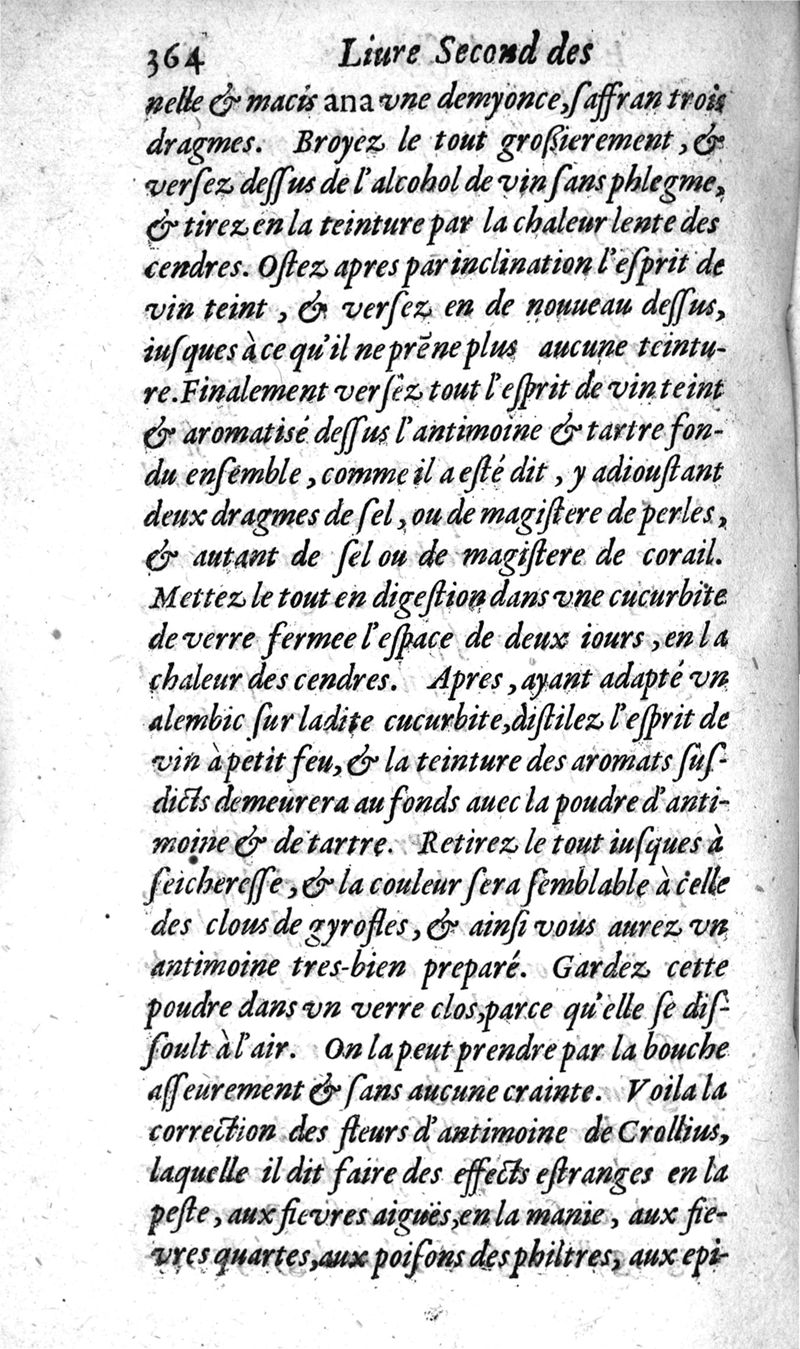 364 Liure Second des
nelle & macis ana vne demyonce, ſaffran trois
dragmes. Broyez le tout groſſierement, &
verſez deſſus de l'alcohol de vin ſans phlegme,
& tirez en la teinture par la chaleur lente des
cendres. Oſtez apres par inclination l'eſprit de
vin teint, & verſez en de nouueau deſſus,
iuſques à ce qu'il ne prẽne plus aucune teintu-
re. Finalement verſez tout l'eſprit de vin teint
& aromatisé deſſus l'antimoine & tartre fon-
du enſemble, comme il a eſté dit, y adiouſtant
deux dragmes de ſel, ou de magiſtere de perles,
& autant de ſel ou de magiſtere de corail.
Mettez le tout en digeſtion dans vne cucurbite
de verre fermee l'eſpace de deux iours, en la
chaleur des cendres. Apres, ayant adapté vn
alembic ſur ladite cucurbite, diſtilez l'eſprit de
vin à petit feu, & la teinture des aromats ſuſ-
dicts demeurera au fonds auec la poudre d'anti-
moine & de tartre. Retirez le tout iuſques à
ſeichereſſe, & la couleur ſera ſemblable à celle
des clous de gyrofles, & ainſi vous aurez vn
antimoine tres-bien preparé. Gardez cette
poudre dans vn verre clos, parce qu'elle ſe diſ-
ſoult à l'air. On la peut prendre par la bouche
aſſeurement & ſans aucune crainte. Voila la
correction des fleurs d'antimoine de Crollius,
laquelle il dit faire des effects eſtranges en la
peſte, aux fievres aiguës, en la manie, aux fie-
vres quartes, aux poiſons des philtres, aux epi-